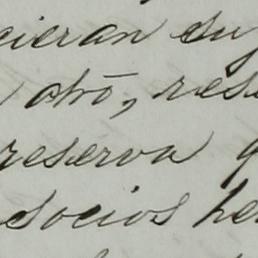 cieran su
otrō, res
reserva q
socios he